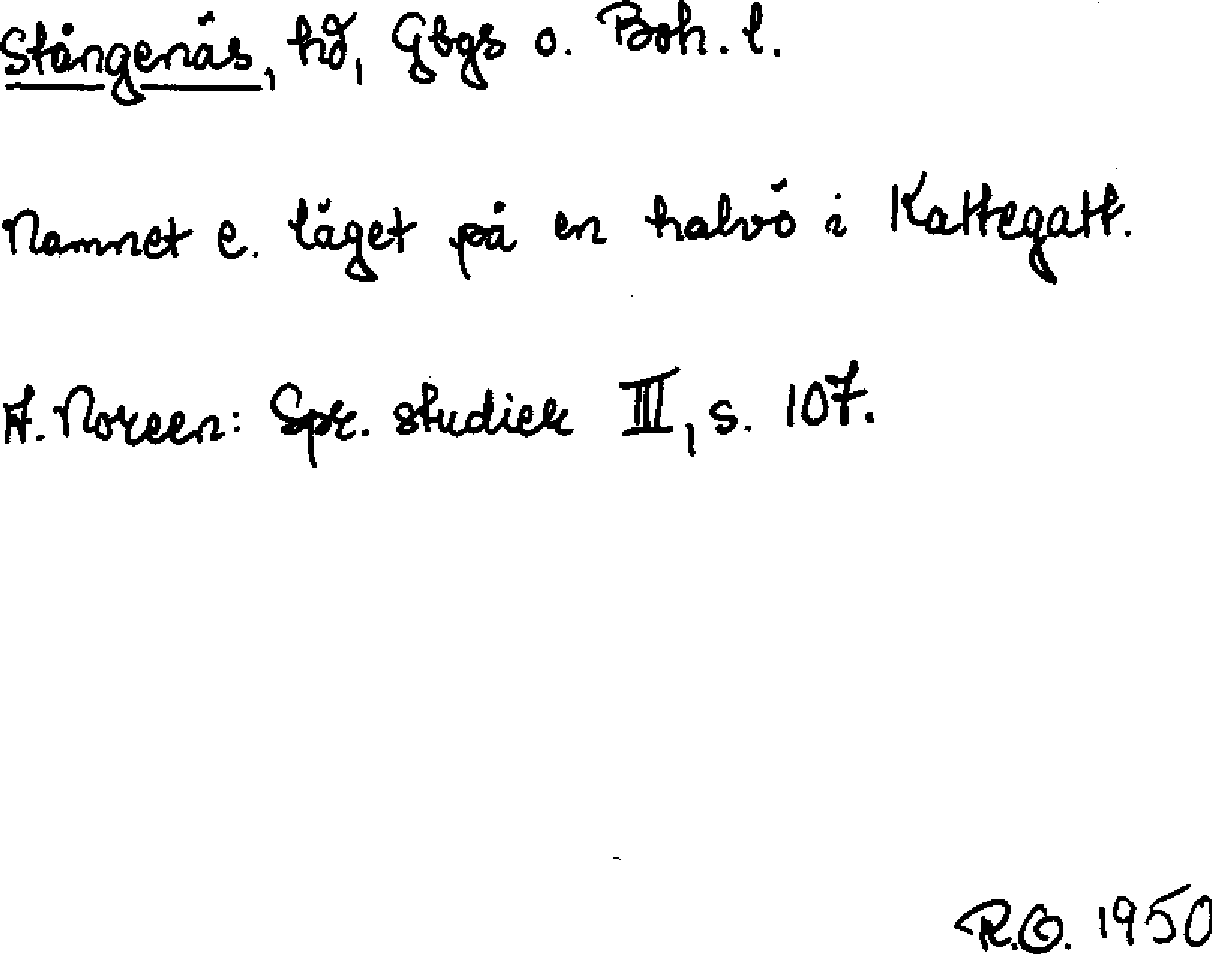 Stångenäs, hd, Gbgs o. Boh. l.
Namnet e. läget på en halvö i Kattegatt.
A. Noreen: Spr. studier III, s. 107.
R.O. 1950